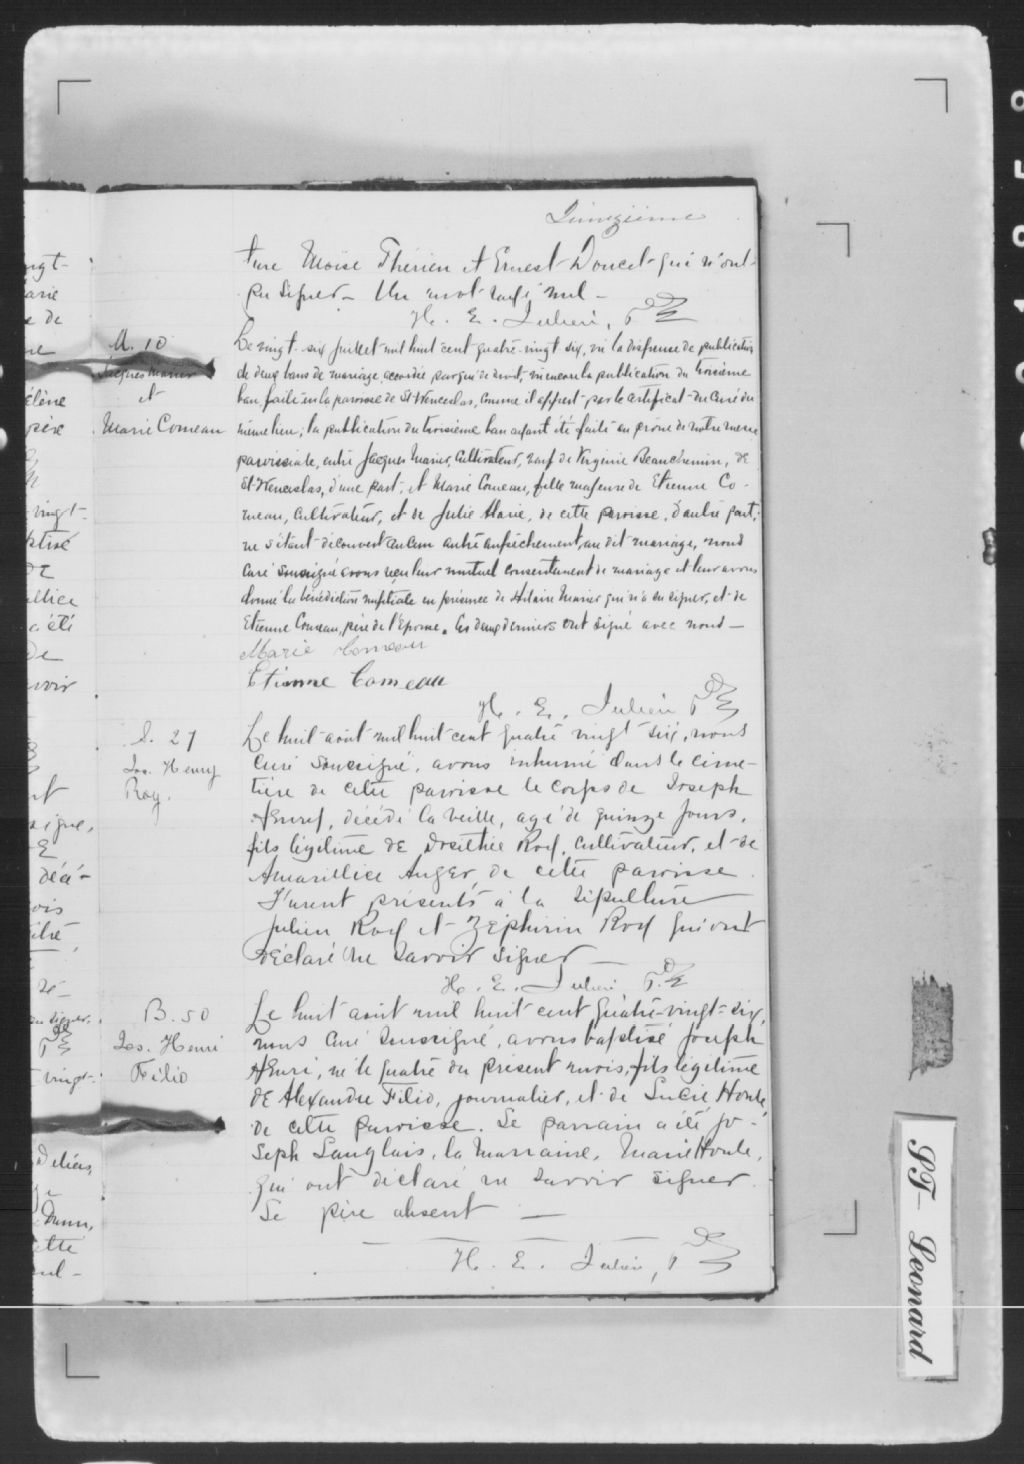 Quinzième
ture Moïse Thérien et Ernest Doucet qui n'ont
pu signer - Un mot rayé nul -
H. E. Julien, Ptre
M. 10
Jacques Marier
et
Marie Comeau
Le vingt-six juillet mil huit cent quatre-vingt six, vu la dispense de publication
de deux bans de mariage accordée par qui de droit, vu encore la publication du troisième
ban faite en la paroisse de St Wenceslas, comme il appert par le certificat du curé du
même lieu; la publication du troisième ban ayant été faite au prône de notre messe
paroissiale, entre Jacques Marier, Cultivateur, veuf de Virginie Beauchemin, de
St Wenceslas, d'une part, et Marie Comeau, fille majeure de Etienne Co-
meau, Cultivateur, et de Julie Alarie, de cette paroisse, d'autre part,
ne s'étant découvert aucun autre empêchement au dit mariage, nous
curé soussigné avons reçu leur mutuel consentement de mariage et leur avons
donné la bénédiction nuptiale en présence de Hilaire Marier qui n'a su signer, et de
Etienne Comeau, père de l'épouse. Ces deux derniers ont signé avec nous -
Marie Comeau
Etienne Comeau
H. E. Julien Ptre
S. 27
Jos. Henry
Roy.
Le huit août mil huit cent quatre vingt six, nous
curé soussigné, avons inhumé dans le cime-
tière de cette paroisse le corps de Joseph
Henry, décédé la veille, agé de quinze jours,
fils légitime de Dosithée Roy, cultivateur, et de
Amarillice Auger, de cette paroisse.
Furent présents à la sépulture
Julien Roy et Zéphirin Roy qui ont
déclaré ne savoir signer -
H. E. Julien Ptre
B. 50
Jos. Henri
Filio
Le huit août mil huit cent quatre-vingt-six,
nous curé soussigné, avons baptisé Joseph
Henri, né le quatre du présent mois, fils légitime
de Alexandre Filio, journalier, et de Lucie Houle,
de cette paroisse. Le parrain a été Jo-
seph Langlais, la marraine, Marie Houle,
qui ont déclaré ne savoir signer.
Le père absent -
H. E. Julien, Ptre
ST- Leonard